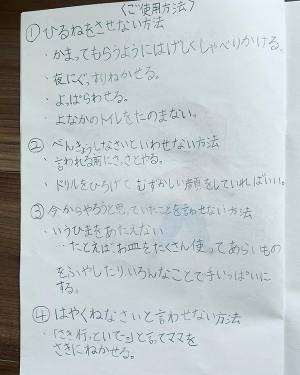 〈ご使用方法〉
① ひるねをさせない方法
・かまってもらうようにはげしくしゃべりかける。
・夜にぐっすりねかせる。
・よっぱらわせる。
・よなかのトイレをたのまない。
② べんきょうしなさいといわせない方法
・言われる前にさっさとやる。
・ドリルをひろげてむずかしい顔をしていればいい。
③ 今からやろうと思っていたことを言わせない方法
・いうひまをあたえない
…たとえば、お皿をたくさん使ってあらいもの
をふやしたり、いろんなことで手いっぱいに
する。
④ はやくねなさいと言わせない方法
・「さき行っといてー」と言ってママを
さきにねかせる。